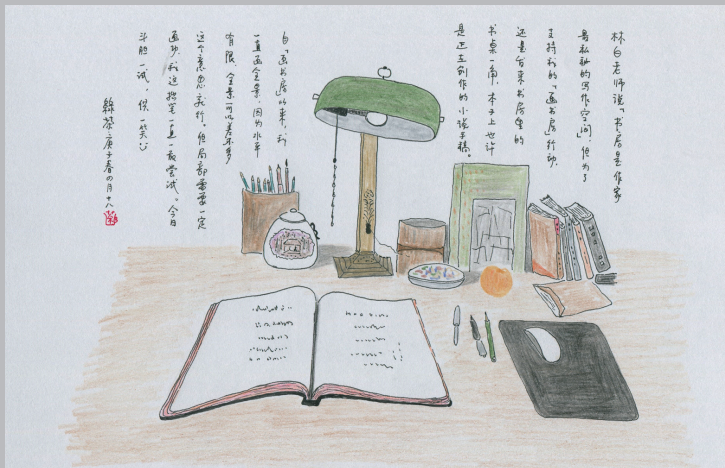 林白老师说「书房是作家
最私秘的写作空间」,但为了
支持我的「画书房」行动,
还是来书房里的
书桌一角,本子上也许
是正在创作的小说手稿。
自「画书房」以来,我
一直画全景,因为水平
有限,全景可以差不多
这个意思就行。但局部需要一定
画功,我这拙笔一直不敢尝试。今日
斗胆一试,供一笑:)
绿茶庚子春四月十八